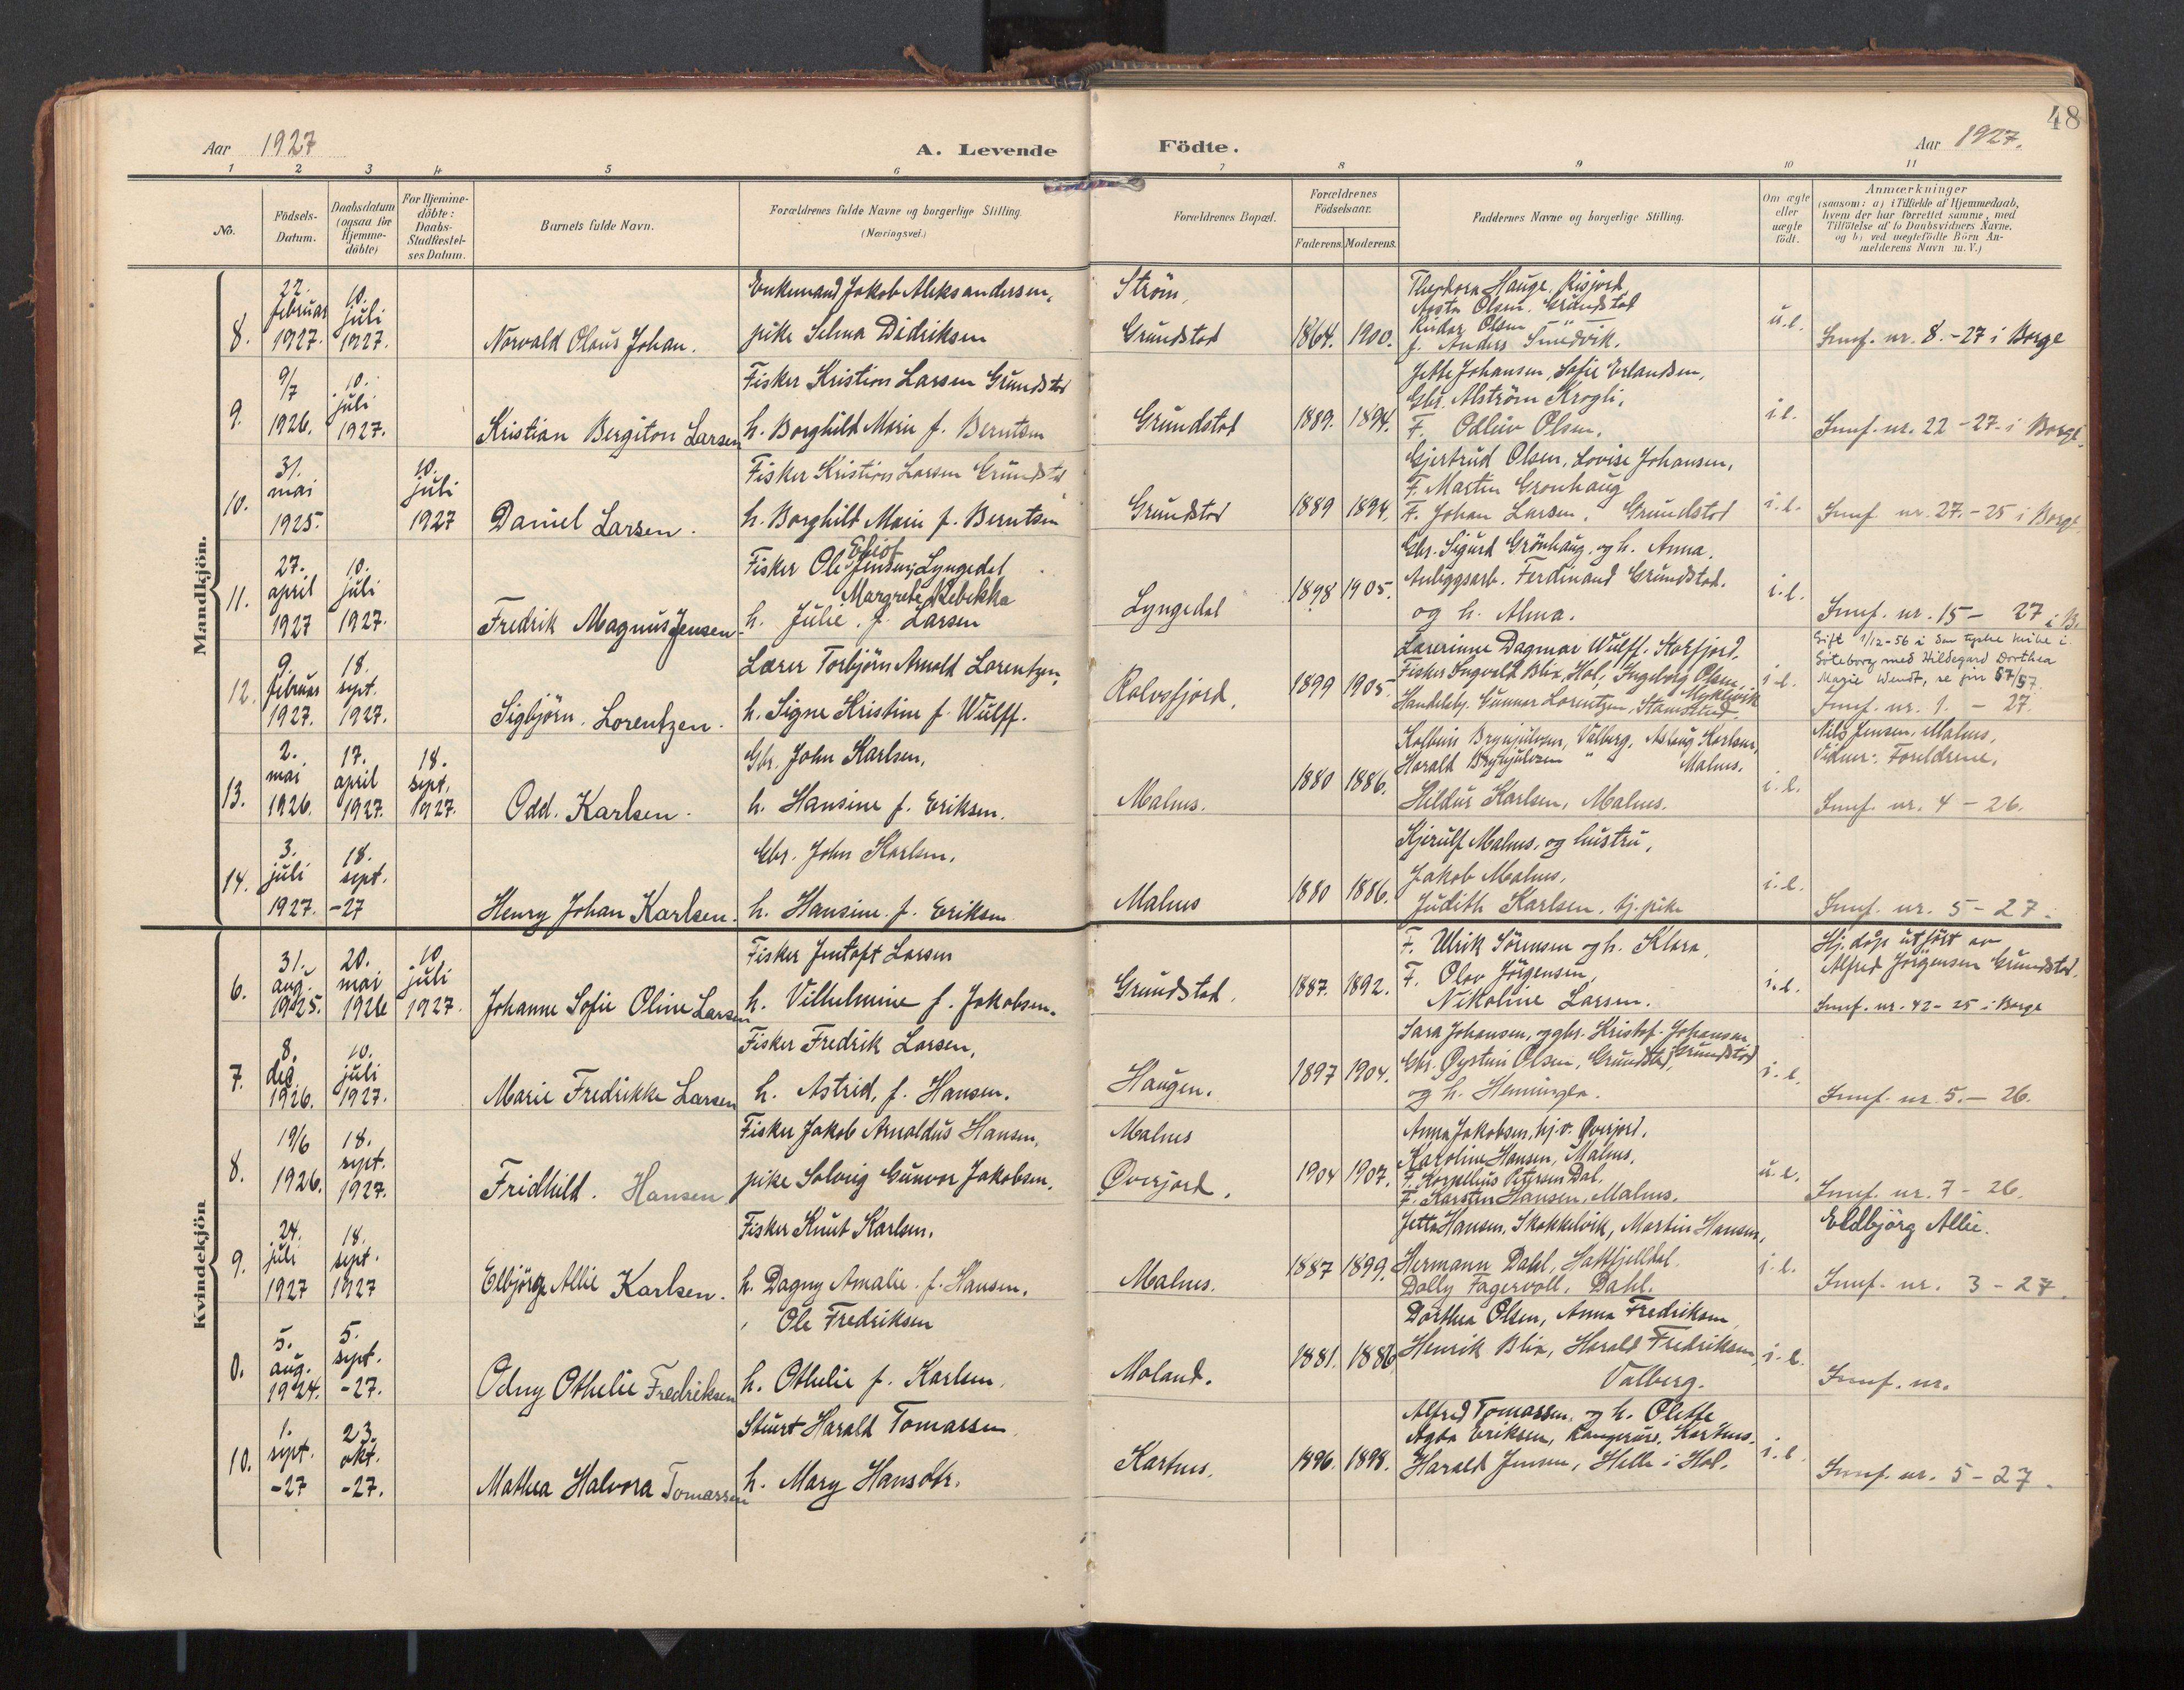 48
Aar 1927 A. Levende Födte. Aar 1927.
1 2 3 4 5 6 7 8 9 10 11
No.
Födsels-
Datum.
Daabsdatum
(ogsaa for
Hjemme-
döbte)
For Hjemme-
döbte:
Daabs-
Stadfæstel-
ses Datum.
Barnets fulde Navn.
Forældrenes fulde Navne og borgerlige Stilling.
(Næringsvei.)
Forældrenes Bopæl.
Forældrenes
Födselsaar.
Faderens. Moderens.
Faddernes Navne og borgerlige Stilling.
Om ægte
eller
uægte
født.
Anmærkninger
(saasom: a) i Tilfælde af Hjemmedaab,
hvem der har forrettet samme, med
Tilföielse af to Daabsvidners Navne,
og b) ved uægtefödte Börn An-
melderens Navn m. V.)
Mandkjön.
8.
22.
februar
1927.
10.
juli
1927.
Norvald Olaus Johan.
Enkemand Jakob Aleksandersen,
pike Selma Didriksen
Ström,
Grundstad
1864. 1900.
Theodora Hauge, Risjord,
Olsen, Grundstad
Reidar Olsen "
f. Anders Smedvik.
u.e.
Innf. nr. 8.-27 i Borge
9.
9/7
1926.
10.
juli
1927.
Kristian Bergiton Larsen
Fisker Kristian Larsen Grundstad
h. Borghild Marie f. Berntsen
Grundstad
1889. 1894.
Jette Johansen, Sofie Erlandsen,
Gbr. Alström Krogli,
F. Odliv Olsen.
i.e.
Innf. nr. 22-27. i Borge.
10.
31.
mai
1925.
10.
juli
1927
Daniel Larsen.
Fisker Kristian Larsen Grundstad
h. Borghild Marie f. Berntsen
Grundstad
1889 1894.
Gjertrud Olsen, Lovise Johansen,
F. Martin Grønhaug
F. Johan Larsen, Grundstad
i.e.
Innf nr. 27.-25 i Borge.
11.
27.
april
1927
10.
juli
1927.
Fredrik Magnus Jensen
Fisker Ole Jensen, Lyngedal
Margrete Rebekka
h. Julie. f. Larsen
Lyngedal
1898 1905.
Gbr. Sigurd Grönhaug. og h. Anna.
Anleggsarb. Ferdinand Grundstad.
og h. Alma.
i.e.
Innf. nr. 15- 27 i B.
12.
9.
februar
1927.
18.
sept.
1927.
Sigbjörn. Lorentzen.
Lærer Torbjörn Arnold Lorentzen,
h. Signe Kristine f. Wulff.
Rolvsfjord,
1899 1905.
Lærerinne Dagmar Wulff. Storfjord.
Fisker Ingvald Blix, Hol, Ingeborg Olsen,
Myklevik
Handelsbj. Gunnar Lorentzen, Stamsund.
i.e.
Gift 1/12-56 i den tyske kirke i
Göteborg med Hildegard Dorthea
Marie Wendt, se jnr 67/57.
Innf. nr. 1. - 27.
13.
2.
mai
1926.
17.
april
1927.
18.
sept.
1927.
Odd. Karlsen.
Gbr. John Karlsen,
h. Hansine f. Eriksen.
Malnes.
1880 1886.
Kolbein Brynjulvsen, Valberg, Aslaug Karlsen,
Harald Brynjulvsen " Malnes.
Hildur Karlsen, Malnes.
i.e.
Nils Jensen, Malnes,
Vidner: Foreldrene.
Innf. nr. 4-26.
14.
3.
juli
1927.
18.
sept.
-27
Henry Johan Karlsen.
Gbr. John Karlsen,
h. Hansine. f. Eriksen
Malnes
1880 1886.
Kjerulf Malnes, og hustru,
Jakob Malnes,
Judith Karlsen, tj. pike
i.e.
Innf. nr. 5-27.
Kvindekjön
6.
31.
aug.
1925.
20.
mai
1926
10
juli
1927.
Johanne Sofie Oline Larsen
Fisker Jentoft Larsen
h. Vilhelmine f. Jakobsen.
Grundstad.
1887. 1892.
F. Ulrik Sörensen og h. Klara,
F. Olav Jörgensen,
Nikoline Larsen.
i.e.
Hj. dåp utfört av
Alfred Jörgensen Grundstad.
Innf. nr. 42-25 i Borge
7.
8.
des
1926.
10.
juli
1927.
Marie Fredrikke Larsen
Fisker Fredrik Larsen,
h. Astrid, f. Hansen.
Haugen.
1897 1904.
Sara Johansen, og gbr. Kristof. Johansen
Gbr. Øystein Olsen, Grundstad, Grundstad
og h. Henninga.
i.e.
Innf. nr. 5.- 26.
8.
19/6
1926.
18.
sept.
1927.
Fridhild. Hansen
Fisker Jakob Arnoldus Hansen,
pike Solveig Gunvor Jakobsen.
Malnes
Øverjord.
1904 1907.
Anna Jakobsen, hj.v. Øverjord.
Karoline Hansen, Malnes.
F. Kornelius Petersen Dal.
F. Karsten Hansen, Malnes.
u.e.
Innf. nr. 7-26.
9.
24.
juli
1927
18.
sept.
1927
Elbjörg Allie Karlsen.
Fisker Knut Karlsen.
h. Dagny Amalie. f. Hansen.
Malnes.
1887 1899.
Jetta Hansen, Skokkelvik, Martin Hansen,
Hermann Dahl, Hattfjelldal.
Dolly Fagervoll, Dahl.
i.e.
Eldbjörg Allie.
Innf. nr. 3-27.
0.
5.
aug.
1924.
5.
sept.
-27.
Odny Othelie Fredriksen
Ole Fredriksen
h. Othelie f. Karlsen.
Moland.
1881. 1886
Dorthea Olsen, Anna Fredriksen,
Henrik Blix, Harald Fredriksen,
Valberg.
i.e.
Innf. nr.
10.
1.
sept.
-27
23.
okt.
-27.
Mathea Halvora Tomassen
Stuert Harald Tomassen
h. Mary Hansdtr.
Kartnes.
1896. 1898.
Alfred Tomassen, og h. Olette
Agda Eriksen, Kartnes.
Harald Jensen, Helle i Hol.
i.e.
Innf. nr. 5-27.